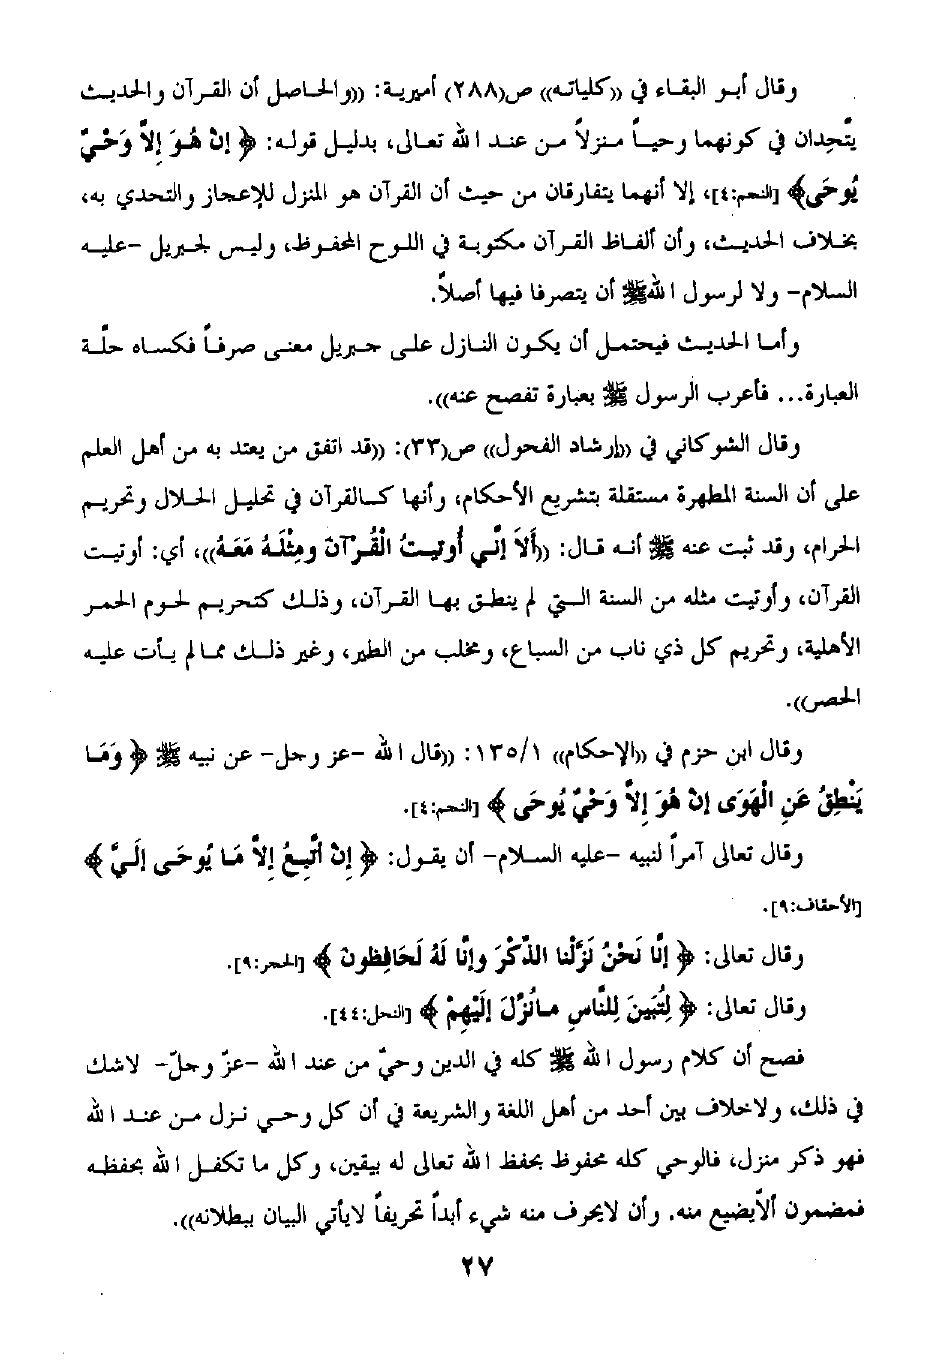 وقال أبو البقاء في ((كلياته)) ص(٢٨٨) أميرية: ((والحاصل أن القرآن والحديث
يتّحِدان في كونهما وحياً منزلاً من عند الله تعالى، بدليل قوله: ﴿ إنْ هُوَ إلاَّ وَحْيٌ
يُوحَى﴾ [النجم:٤]، إلا أنهما يتفارقان من حيث أن القرآن هو المنزل للإعجاز والتحدي به،
بخلاف الحديث، وأن ألفاظ القرآن مكتوبة في اللوح المحفوظ، وليس لجبريل -عليه
السلام- ولا لرسول اللهﷺ أن يتصرفا فيها أصلاً.
وأما الحديث فيحتمل أن يكون النازل على جبريل معنى صرفاً فكساه حلّة
العبارة... فأعرب الرسول ﷺ بعبارة تفصح عنه)).
وقال الشوكاني في ((إرشاد الفحول)) ص(٣٣): ((قد اتفق من يعتد به من أهل العلم
على أن السنة المطهرة مستقلة بتشريع الأحكام، وأنها كالقرآن في تحليل الحلال وتحريم
الحرام، وقد ثبت عنه ﷺ أنه قال: ((أَلاَ إنَّي أُوتيتُ الْقُرْآنَ ومِثْلَهُ مَعَهُ))، أي: أوتيت
القرآن، وأوتيت مثله من السنة التي لم ينطق بها القرآن، وذلك كتحريم لحوم الحمر
الأهلية، وتحريم كل ذي ناب من السباع، ومخلب من الطير، وغير ذلك مما لم يأت عليه
الحصر)).
وقال ابن حزم في ((الإحكام)) ١٣٥/١: ((قال الله -عز وجل- عن نبيه ﷺ ﴿ وَمَا
يَنْطِقُ عَنِ الْهَوَى إنْ هُوَ إلاَّ وَحْيٌ يُوحَى ﴾ [النجم:٤].
وقال تعالى آمراً لنبيه -عليه السلام- أن يقول: ﴿ إنْ أتَّبِعُ إلاَّ مَا يُوحَى إلَيَّ ﴾
[الأحقاف:٩].
وقال تعالى: ﴿ إنَّا نَحْنُ نَزَّلْنا الذَّكْرَ وإنَّا لَهُ لَحَافِظُونَ ﴾ [الحجر:٩].
وقال تعالى: ﴿ لِتُبَينَ لِلنَّاسِ مانُزِّلَ إلَيْهِمْ ﴾ [النحل:٤٤].
فصح أن كلام رسول الله ﷺ كله في الدين وحيٌ من عند الله -عزّ وجلّ- لاشك
في ذلك، ولاخلاف بين أحد من أهل اللغة والشريعة في أن كل وحي نزل من عند الله
فهو ذكر منزل، فالوحي كله محفوظ بحفظ الله تعالى له بيقين، وكل ما تكفل الله بحفظه
فمضمون ألاّيضيع منه. وأن لايحرف منه شيء أبداً تحريفاً لايأتي البيان ببطلانه)).
٢٧